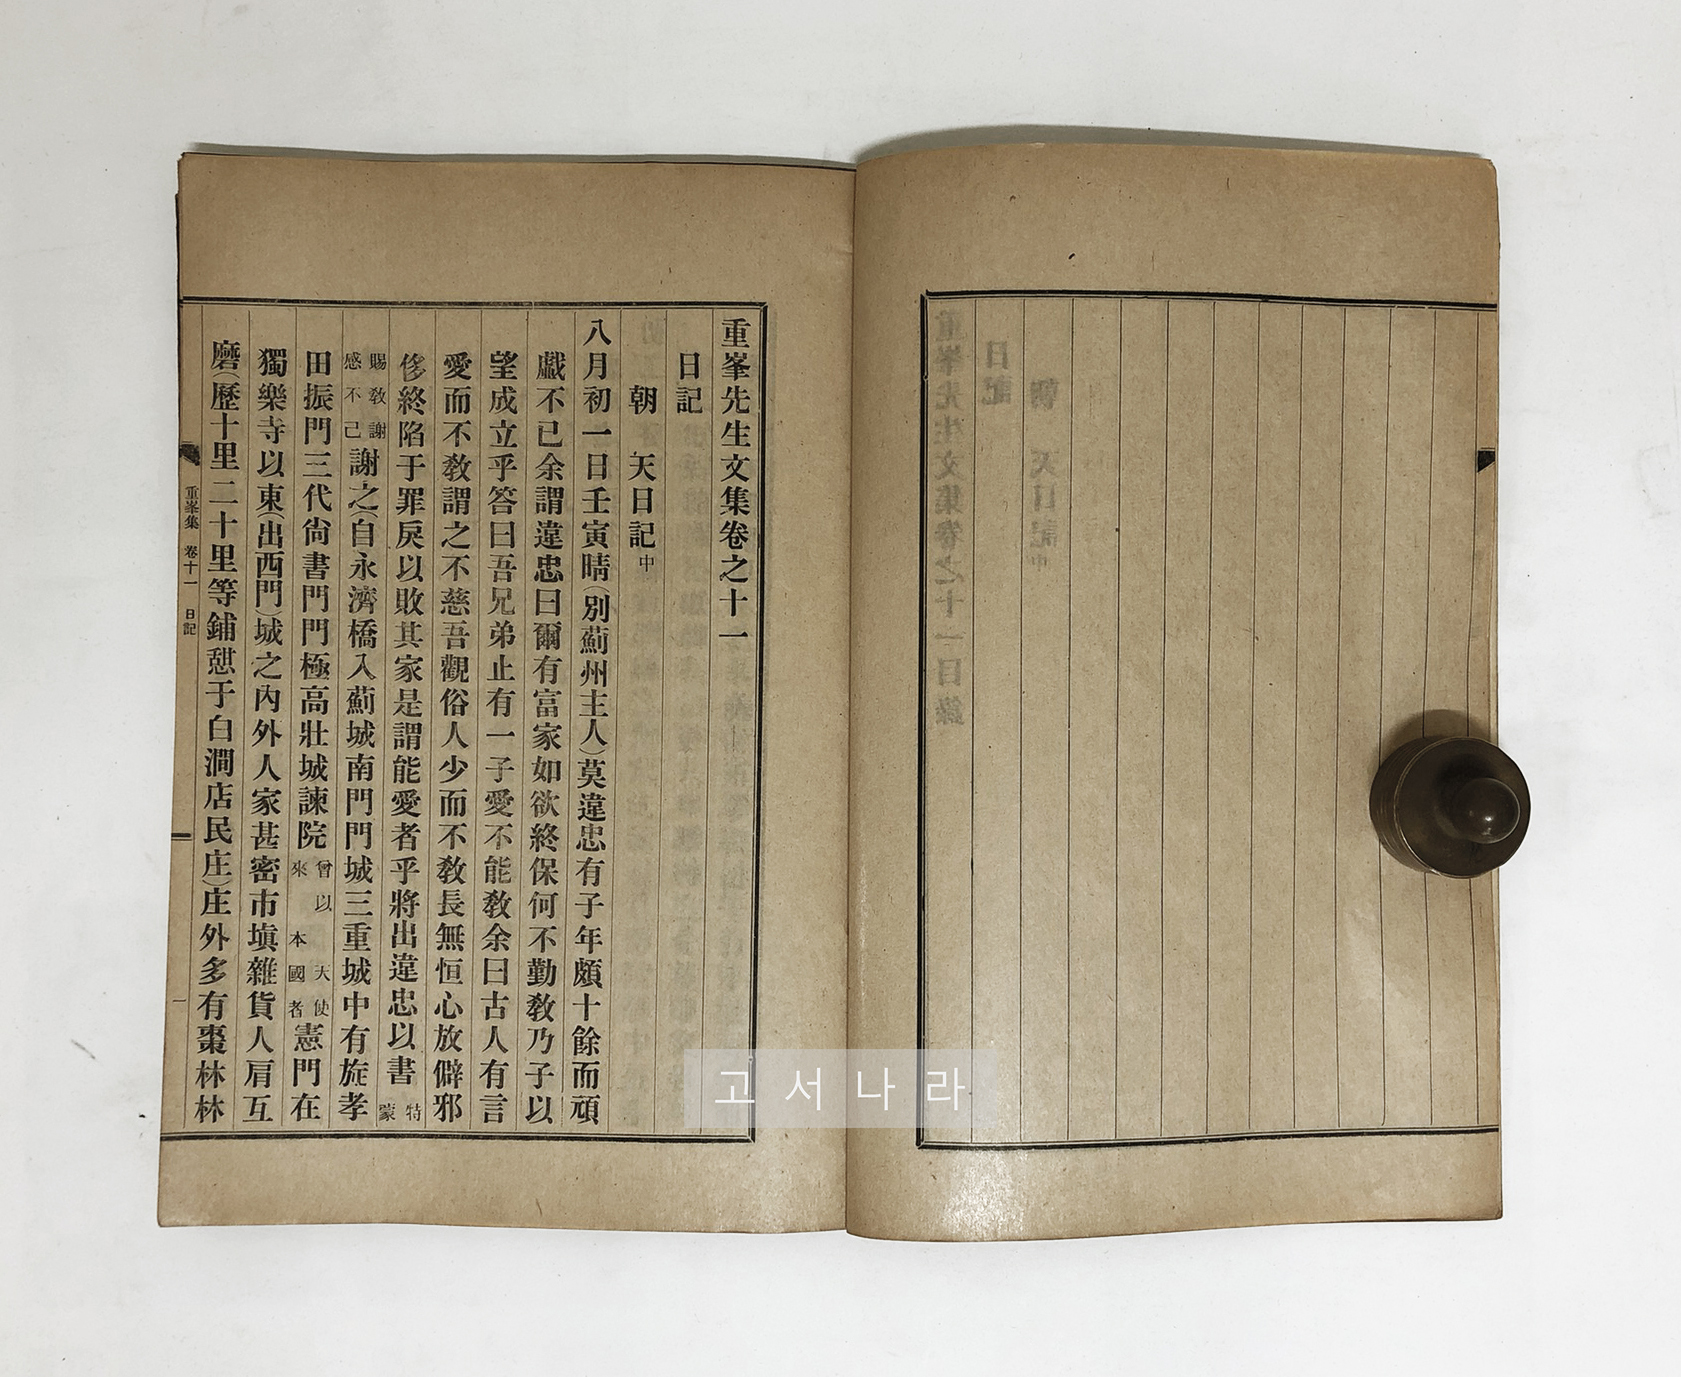 重峯先生文集卷之十一
日記
朝 天日記 中
八月初一日壬寅晴(別薊州主人)莫違忠有子年頗十餘而頑
戱不已余謂違忠曰爾有富家如欲終保何不勤敎乃子以
望成立乎答曰吾兄弟止有一子愛不能敎余曰古人有言
愛而不敎謂之不慈吾觀俗人少而不敎長無恒心放僻邪
侈終陷于罪戾以敗其家是謂能愛者乎將出違忠以書 特蒙
賜敎謝感不己 謝之(自永濟橋入薊城南門門城三重城中有旌孝
田振門三代尙書門門極高壯城諫院 曾以 天使來 本國者 憲門在
獨樂寺以東(出西門)城之內外人家甚密市塡雜貨人肩互
磨(歷十里二十里等鋪憇于白澗店民庄)庄外多有棗林林
重峯集 卷十一 日記 一
고서나라